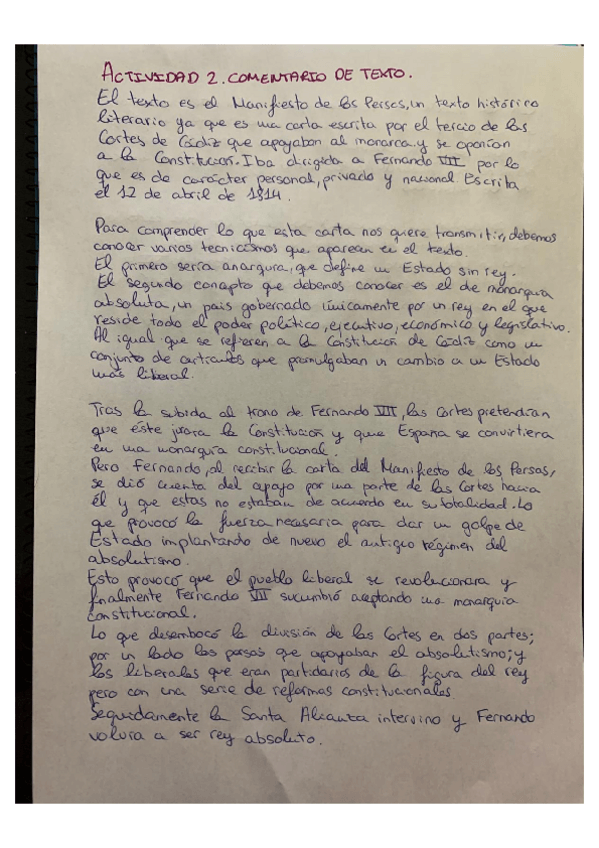 ACTIVIDAD 2. COMENTARIO DE TEXTO.
El texto es el Manifiesto de los Persas, un texto histórico
literario ya que es una carta escrita por el tercio de las
Cortes de Cádiz que apoyaban al monarca y se oponían
a la Constitución. Iba dirigida a Fernando VII por lo
que es de carácter personal, privado y nacional. Escrita
el 12 de abril de 1814.
Para comprender lo que esta carta nos quiere transmitir, debemos
conocer varios tecnicismos que aparecen en el texto.
El primero sería anarquía, que define un Estado sin rey.
El segundo concepto que debemos conocer es el de monarquía
absoluta, un país gobernado únicamente por un rey en el que
reside todo el poder político, ejecutivo, económico y legislativo.
Al igual que se refieren a la Constitución de Cádiz como un
conjunto de artículos que promulgaban un cambio a un Estado
más liberal.
Tras la subida al trono de Fernando VII, las Cortes pretendían
que éste jurara la Constitución y que España se convirtiera
en una monarquía constitucional.
Pero Fernando, al recibir la carta del Manifiesto de los Persas,
se dió cuenta del apoyo por una parte de las Cortes hacia
él y que estas no estaban de acuerdo en su totalidad. Lo
que provocó la fuerza necesaria para dar un golpe de
Estado implantando de nuevo el antiguo régimen del
absolutismo.
Esto provocó que el pueblo liberal se revolucionara y
finalmente Fernando VII sucumbió aceptando una monarquía
constitucional.
Lo que desembocó la división de las Cortes en dos partes;
por un lado los persas que apoyaban el absolutismo; y
los liberales que eran partidarios de la figura del rey
pero con una serie de reformas constitucionales.
Seguidamente la Santa Alianza intervino y Fernando
volvía a ser rey absoluto.